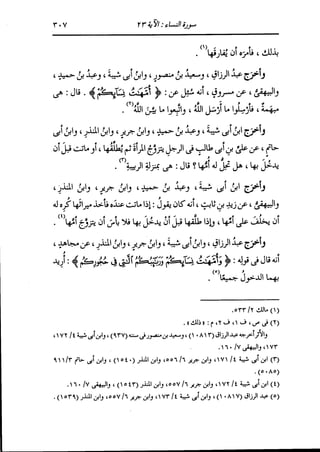 سورة النساء : الآية ٢٣ ٣٠٧
بذلك ، فأمره أن يفارقها(١) .
وأخرج عبد الرزاق ، وسعيد بن منصور ، وابن أبى شيبة ، وعبد بن حميد ،
والبيهقى ، عن مسروق ، أنه سُئِل عن : ﴿ أمهات نسائكم ﴾ . قال : هى
مبهمة ، فأرسلوا ما أرسل الله ، واتبعوا ما بيَّن الله(٢) .
وأخرج ابن أبى شيبة ، وعبد بن حميد ، وابن جرير ، وابن المنذر ، وابن أبى
حاتم ، عن على بن أبى طالب فى الرجل يتزوج المرأة ثم يطلقها ، أو ماتت قبل أن
يدخل بها ، هل تحل له أمها ؟ قال : هى بمنزلة الربيبة(٣) .
وأخرج ابن أبى شيبة ، وعبد بن حميد ، وابن المنذر ،
والبيهقى ، عن زيد بن ثابت ، أنه كان يقول : إذا ماتت عنده فأخذ ميراثها كره له
أن يخلف على أمها ، وإذا طلقها قبل أن يدخل بها فلا بأس أن يتزوج أمها(٤) .
وأخرج عبد الرزاق ، وابن أبى شيبة ، وابن جرير ، وابن المنذر ، عن مجاهد ،
أنه قال فى قوله : ﴿ وأمهات نسائكم وربائبكم التى فى حجوركم ﴾ : أريد
بهما الدخول جميعًا(٥) .
(١) مالك ٢/ ٥٣٣ .
(٢) فى ص ، ف ١ ، ف ٢ ، م : « ذلك » .
والأثر أخرجه عبد الرزاق (١٠٨١٣) ، وسعيد بن منصور فى سننه (٩٣٧) ، وابن أبى شيبة ٤/ ١٧٢ ،
١٧٣ ، والبيهقى ٧/ ١٦٠ .
(٣) ابن أبى شيبة ٤/ ١٧١ ، وابن جرير ٦/ ٥٥٦ ، وابن المنذر (١٥٤٠) ، وابن أبى حاتم ٣/ ٩١١
(٥٠٨٥) .
(٤) ابن أبى شيبة ٤/ ١٧٢ ، وابن جرير ٦/ ٥٥٧ ، وابن المنذر (١٥٤٣) ، والبيهقى ٧/ ١٦٠ .
(٥) عبد الرزاق (١٠٨١٧) ، وابن أبى شيبة ٤/ ١٧٣ ، وابن جرير ٦/ ٥٥٧ ، وابن المنذر (١٥٣٩) .